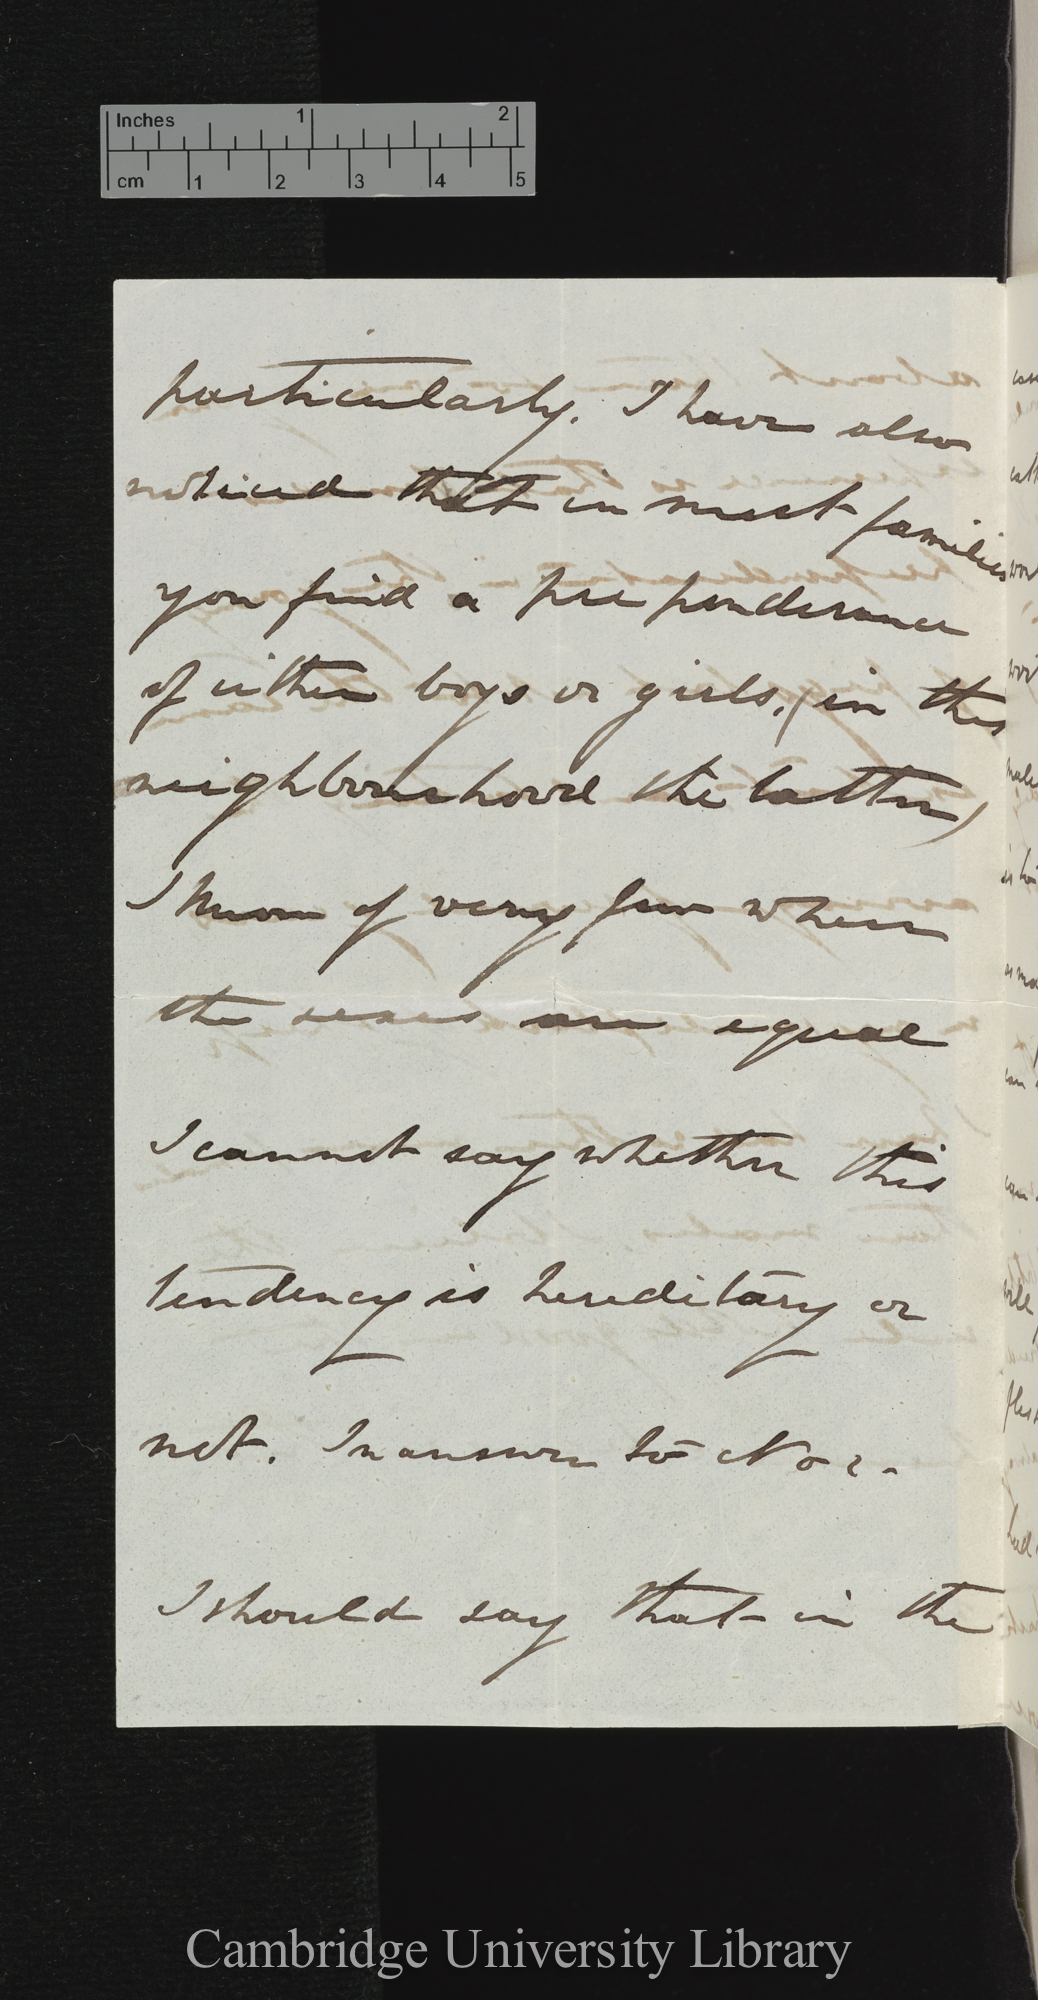 Inches 1 2
cm 1 2 3 4 5
particularly. I have also
noticed that in most families
you find a preponderance
of either boys or girls, (in this
neighbourhood the latter)
I know of very few where
the sexes are equal
I cannot say whether this
tendency is hereditary or
not. In answer to No 2.
I should say that in the
Cambridge University Library